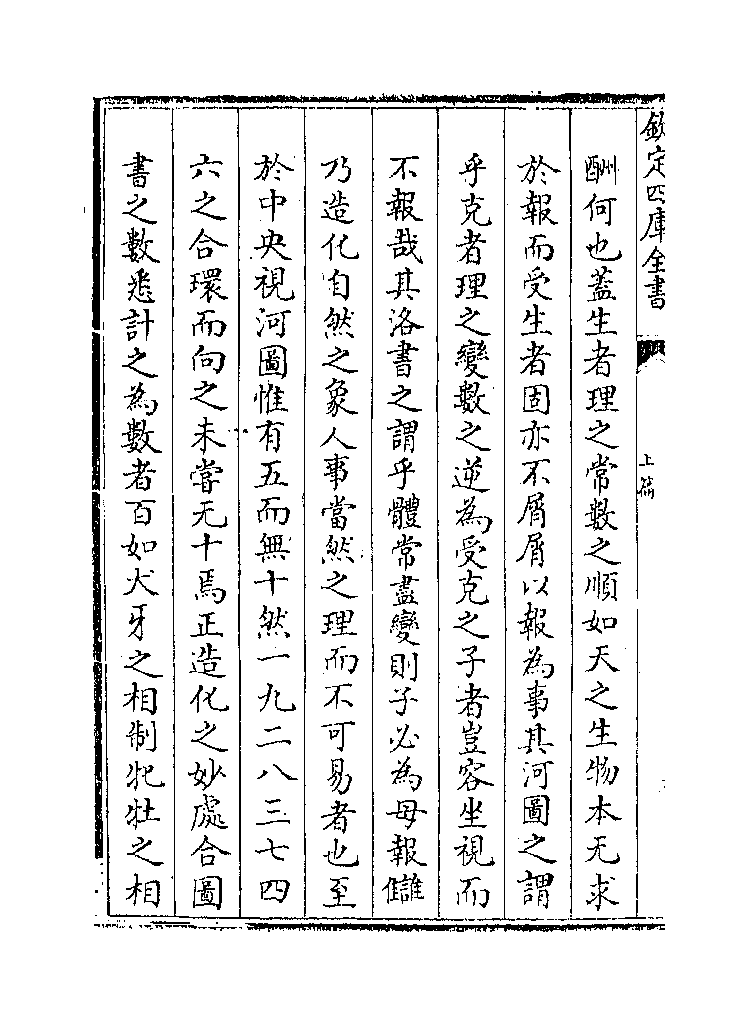 欽定四庫全書
上篇
酬何也蓋生者理之常數之順如天之生物本无求
於報而受生者固亦不屑屑以報為事其河圖之謂
乎克者理之變數之逆為受克之子者豈容坐視而
不報哉其洛書之謂乎體常盡變則子必為母報讎
乃造化自然之象人事當然之理而不可易者也至
於中央視河圖惟有五而無十然一九二八三七四
六之合環而向之未嘗无十焉正造化之妙處合圖
書之數悉計之為數者百如犬牙之相制牝牡之相